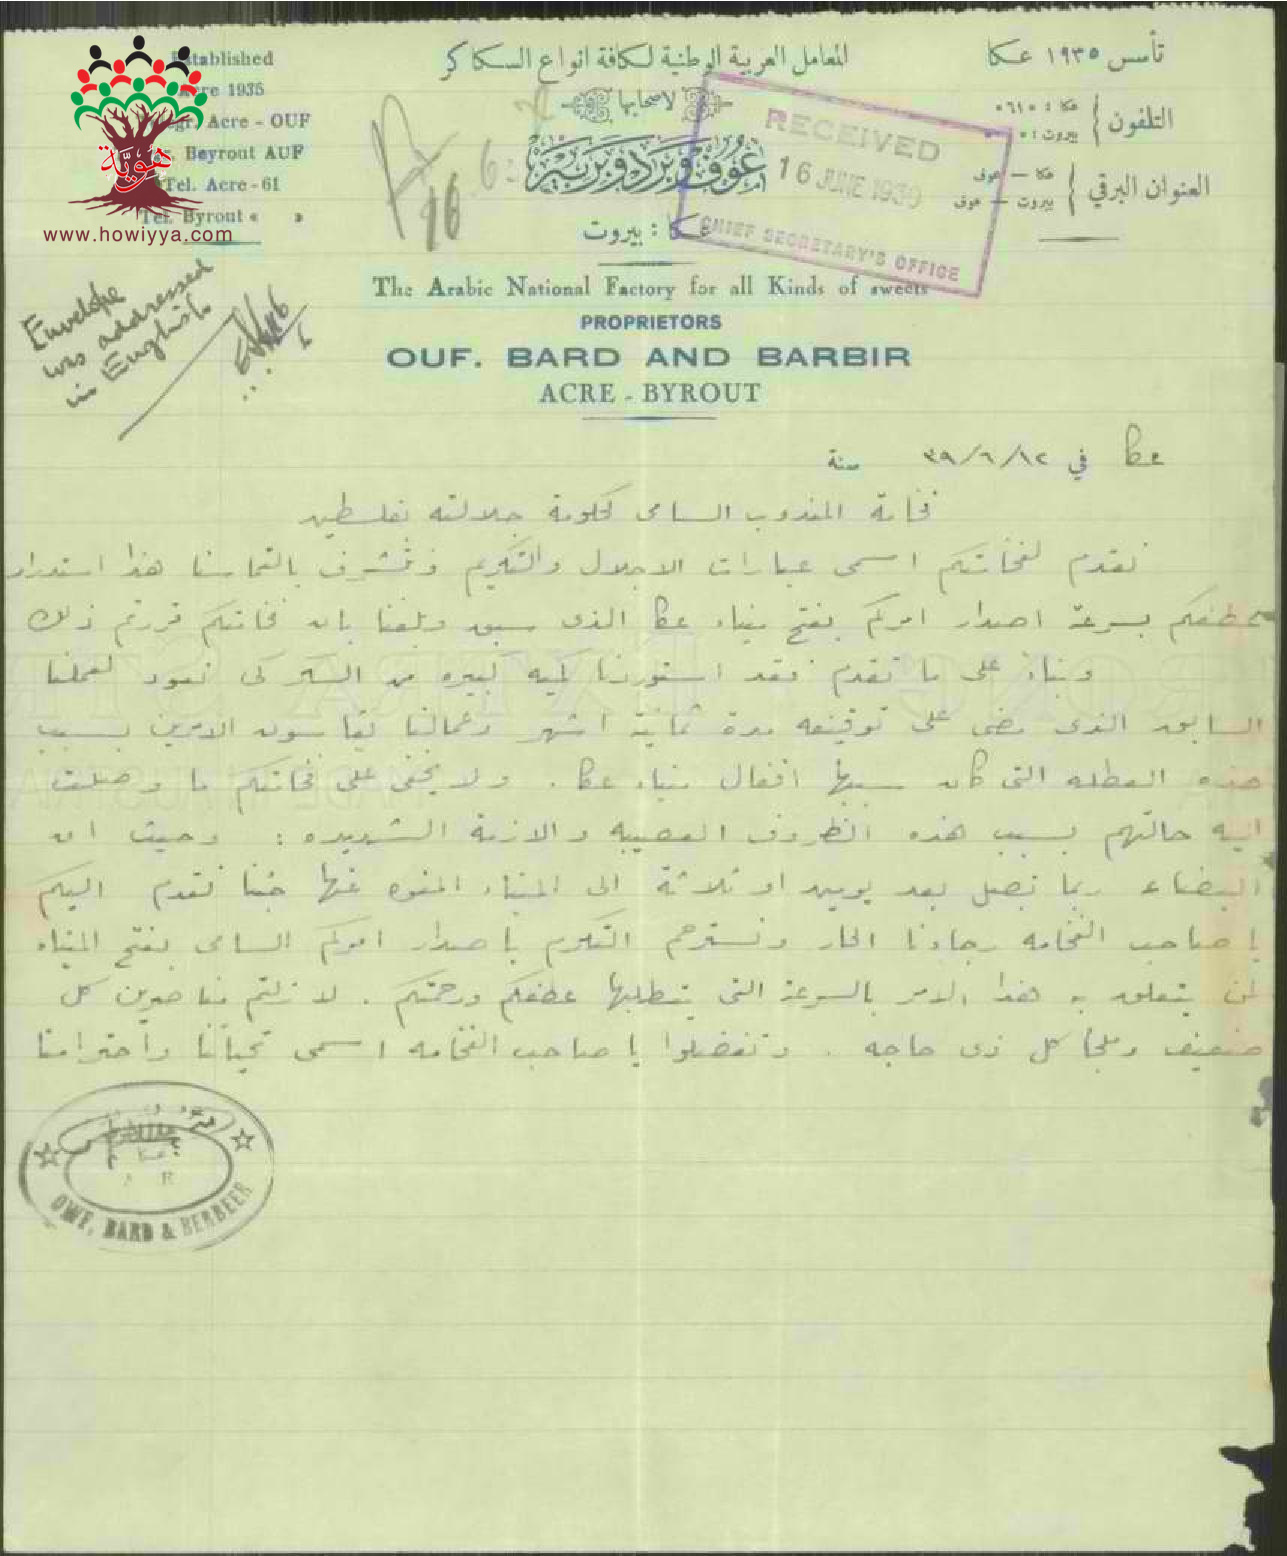 Established
Acre 1935
Acre - OUF
Beyrout AUF
Tel. Acre - 61
Tel. Byrout « »
www.howiyya.com
المعامل العربية الوطنية لكافة انواع السكاكر
لاصحابها
عوف وبرد وبربير
عكا : بيروت
تأسس ١٩٣٥ عكا
التلفون
عكا : ٠٦١
بيروت :
العنوان البرقي
عكا — عوف
بيروت — عوف
RECEIVED
16 JUNE 1939
CHIEF SECRETARY'S OFFICE
The Arabic National Factory for all Kinds of sweets
PROPRIETORS
OUF. BARD AND BARBIR
ACRE - BYROUT
Envelope
was addressed
in English
16
عكا في ١٢/٦/٣٩ سنة
فخامة المندوب السامي لحكومة جلالته بفلسطين
نقدم لفخامتكم اسمى عبارات الاجلال والتكريم ونتشرف بالتماسنا هذا استدرار
عطفكم بسرعة اصدار امركم بفتح ميناء عكا الذي سبق وبلغنا بان فخامتكم قررتم ذلك
وبناءً على ما تقدم فقد استوردنا كميه كبيره من السكر كي نعود لعملنا
السابق الذي مضى على توقيفه مدة ثمانية اشهر وعمالنا يقاسون الامرين بسبب
هذه العطله التي كان سببها اقفال ميناء عكا . ولا يخفى على فخامتكم ما وصلت
اليه حالتهم بسبب هذه الظروف العصيبه والازمة الشديده : وحيث ان
البضاعه ربما تصل بعد يومين او ثلاثة الى الميناء المنوه عنها جئنا نقدم اليكم
يا صاحب الفخامه رجاءنا الحار ونسترحم التكرم باصدار امركم السامي بفتح الميناء
لمن يتعلق به هذا الامر بالسرعة التي يتطلبها عطفكم ورحمتكم . لا زلتم مناصرين كل
ضعيف وملجأ كل ذي حاجه . وتفضلوا يا صاحب الفخامه اسمى تحياتنا واحترامنا
OWF, BARD & BERBEER